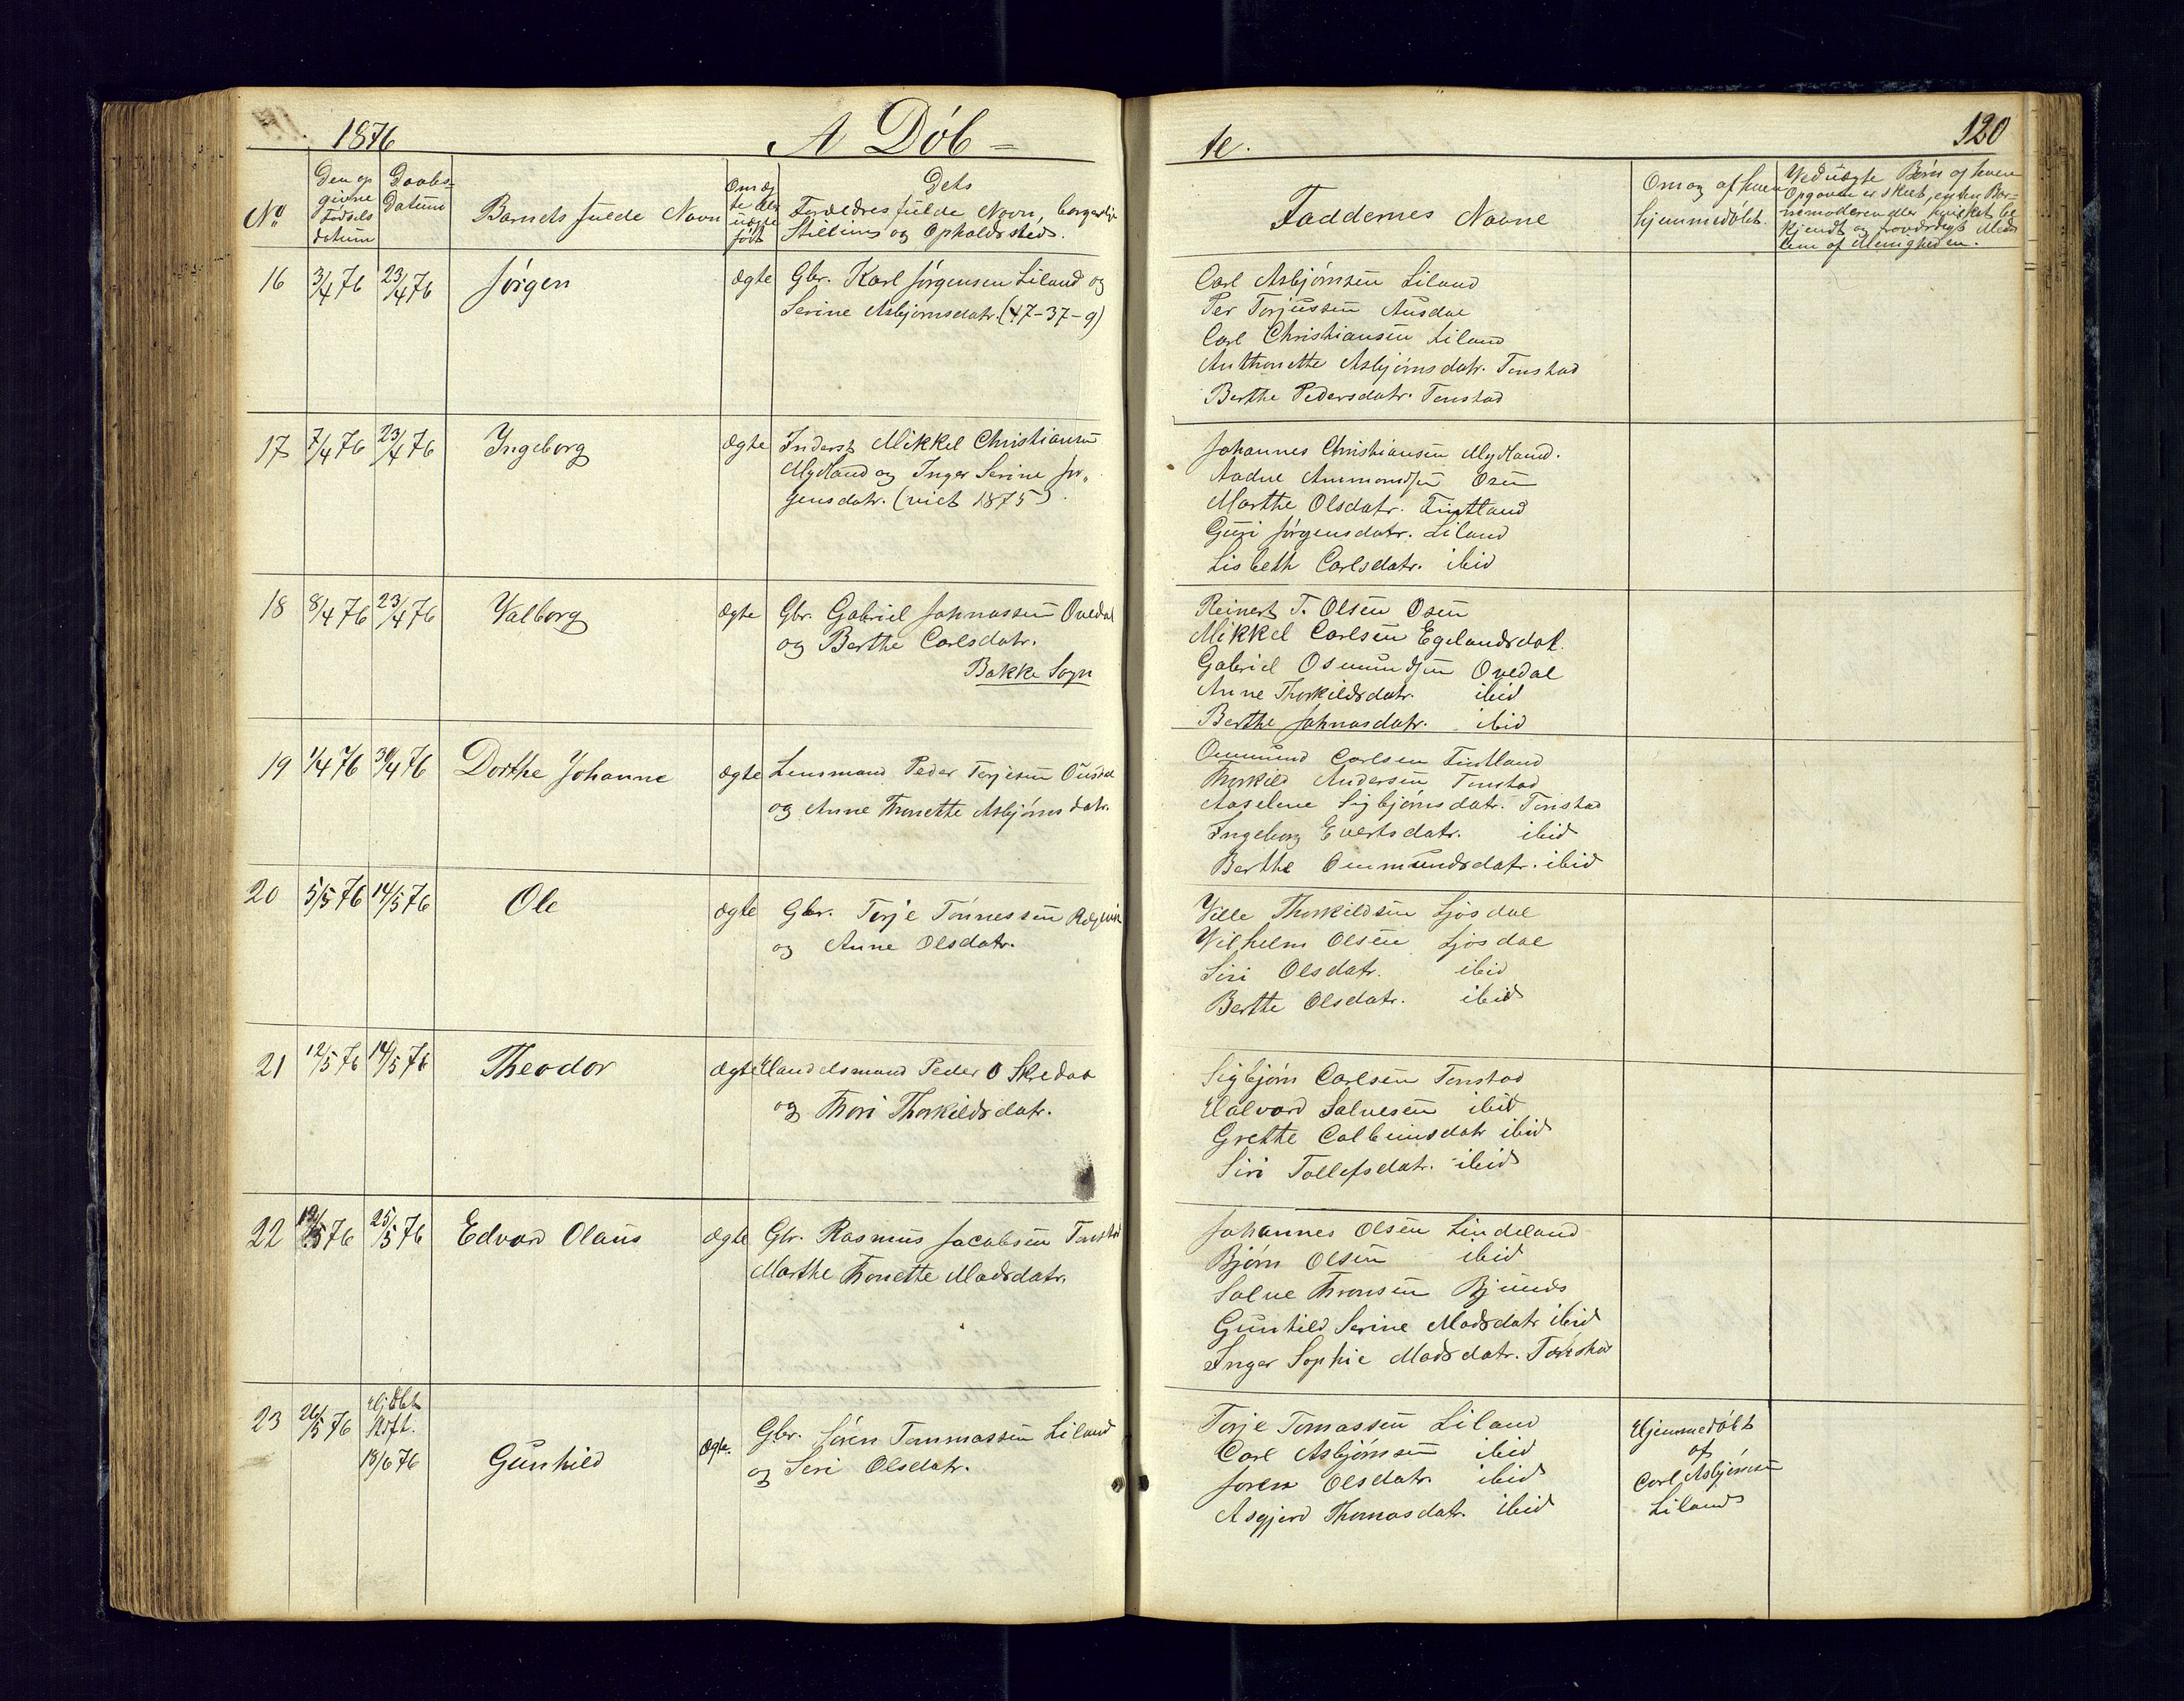 1876
A Døb-
te.
120
No
Den op
givne
Fødsels
datum
Daabs-
Datum
Barnets fulde Navn
Om æg
te eller
uægte
født
Dets
Forældres fulde Navn, borgerlige
Stilling og Opholdssted.
Faddernes Navne
Om og af hvem
hjemmedøbt.
Ved uægte Børn af hvem
Opgaven er skeet, enten Bar-
nemoderen eller
kjendt og troværdigt Med
lem af Menigheden.
16 3/4 76 23/4 76 Jørgen ægte Gbr. Karl Jørgensen Liland og
Serine Asbjørnsdatr. (47-37-9)
Carl Asbjørnsen Liland
Per Torjussen Ausdal
Carl Christiansen Liland
Anthonette Asbjørnsdatr. Tonstad
Berthe Pedersdatr. Tonstad
17 7/4 76 23/4 76 Ingeborg ægte Inderst Mikkel Christiansen
Mydland og Inger Serine Jør„
gensdatr. (viet 1875).
Johannes Christiansen Mydland.
Aadne Ammondsen Osen
Marthe Olsdatr. Fintland
Guri Jørgensdatr. Liland
Lisbeth Carlsdatr. ibid
18 8/4 76 23/4 76 Valborg ægte Gbr. Gabriel Johnassen Ovedal
og Berthe Carlsdatr.
Bakke Sogn
Reinert T. Olsen Osen
Mikkel Carlsen Egelandsdal.
Gabriel Osmundsen Ovedal
Anne Thorkildsdatr. ibid
Berthe Johnasdatr. ibid
19 1/4 76 30/4 76 Dorthe Johanne ægte Lensmand Peder Torjesen Ousdal
og Anne Thonette Asbjørnsdatr.
Ommund Carlsen Fintland
Thorkild Andersen Tonstad
Aaselene Sigbjørnsdatr. Tonstad
Ingeborg Evertsdatr. ibid
Berthe Ommundsdatr. ibid
20 5/5 76 14/5 76 Ole ægte Gbr. Torje Tønnessen
og Anne Olsdatr.
Ville Thorkildsen Sjøsdal
Vilhelm Olsen Sjøsdal
Siri Olsdatr. ibid
Berthe Olsdatr. ibid
21 12/5 76 14/5 76 Theodor ægte Handelsmand Peder O Skredaa
og Thori Thorkildsdatr.
Sigbjørn Carlsen Tonstad
Halvord Salvesen ibid
Grethe Colbeinsdatr ibid
Siri Tollefsdatr. ibid
22 19/5 76 25/5 76 Edvard Olaus ægte Gbr. Rasmus Jacobsen Tonstad
Marthe Thonette Madsdatr.
Johannes Olsen Lindeland
Bjørn Olsen ibid
Salve Thronsen Bjunds
Gunhild Serine Madsdatr ibid
Inger Sophie Madsdatr. Tonstad
23 26/5 76 Hjdbt
Stdft.
18/6 76 Gunhild ægte. Gbr. Søren Tommassen Liland
og Seri Olsdatr.
Torje Tomassen Liland
Carl Asbjørnsen ibid
Joren Olsdatr. ibid
Asgjerd Thomasdatr. ibid
Hjemmedøbt
af
Carl Asbjørnsen
Liland